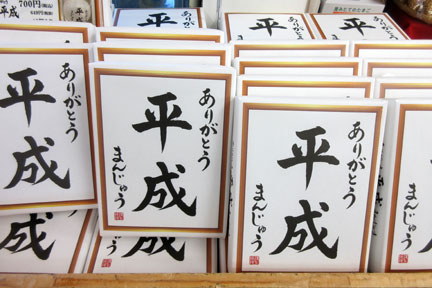 700円(税込)
平成
ありがとう
平成
まんじゅう
ありがとう
平成
まんじゅう
ありがとう
平成
まんじゅう